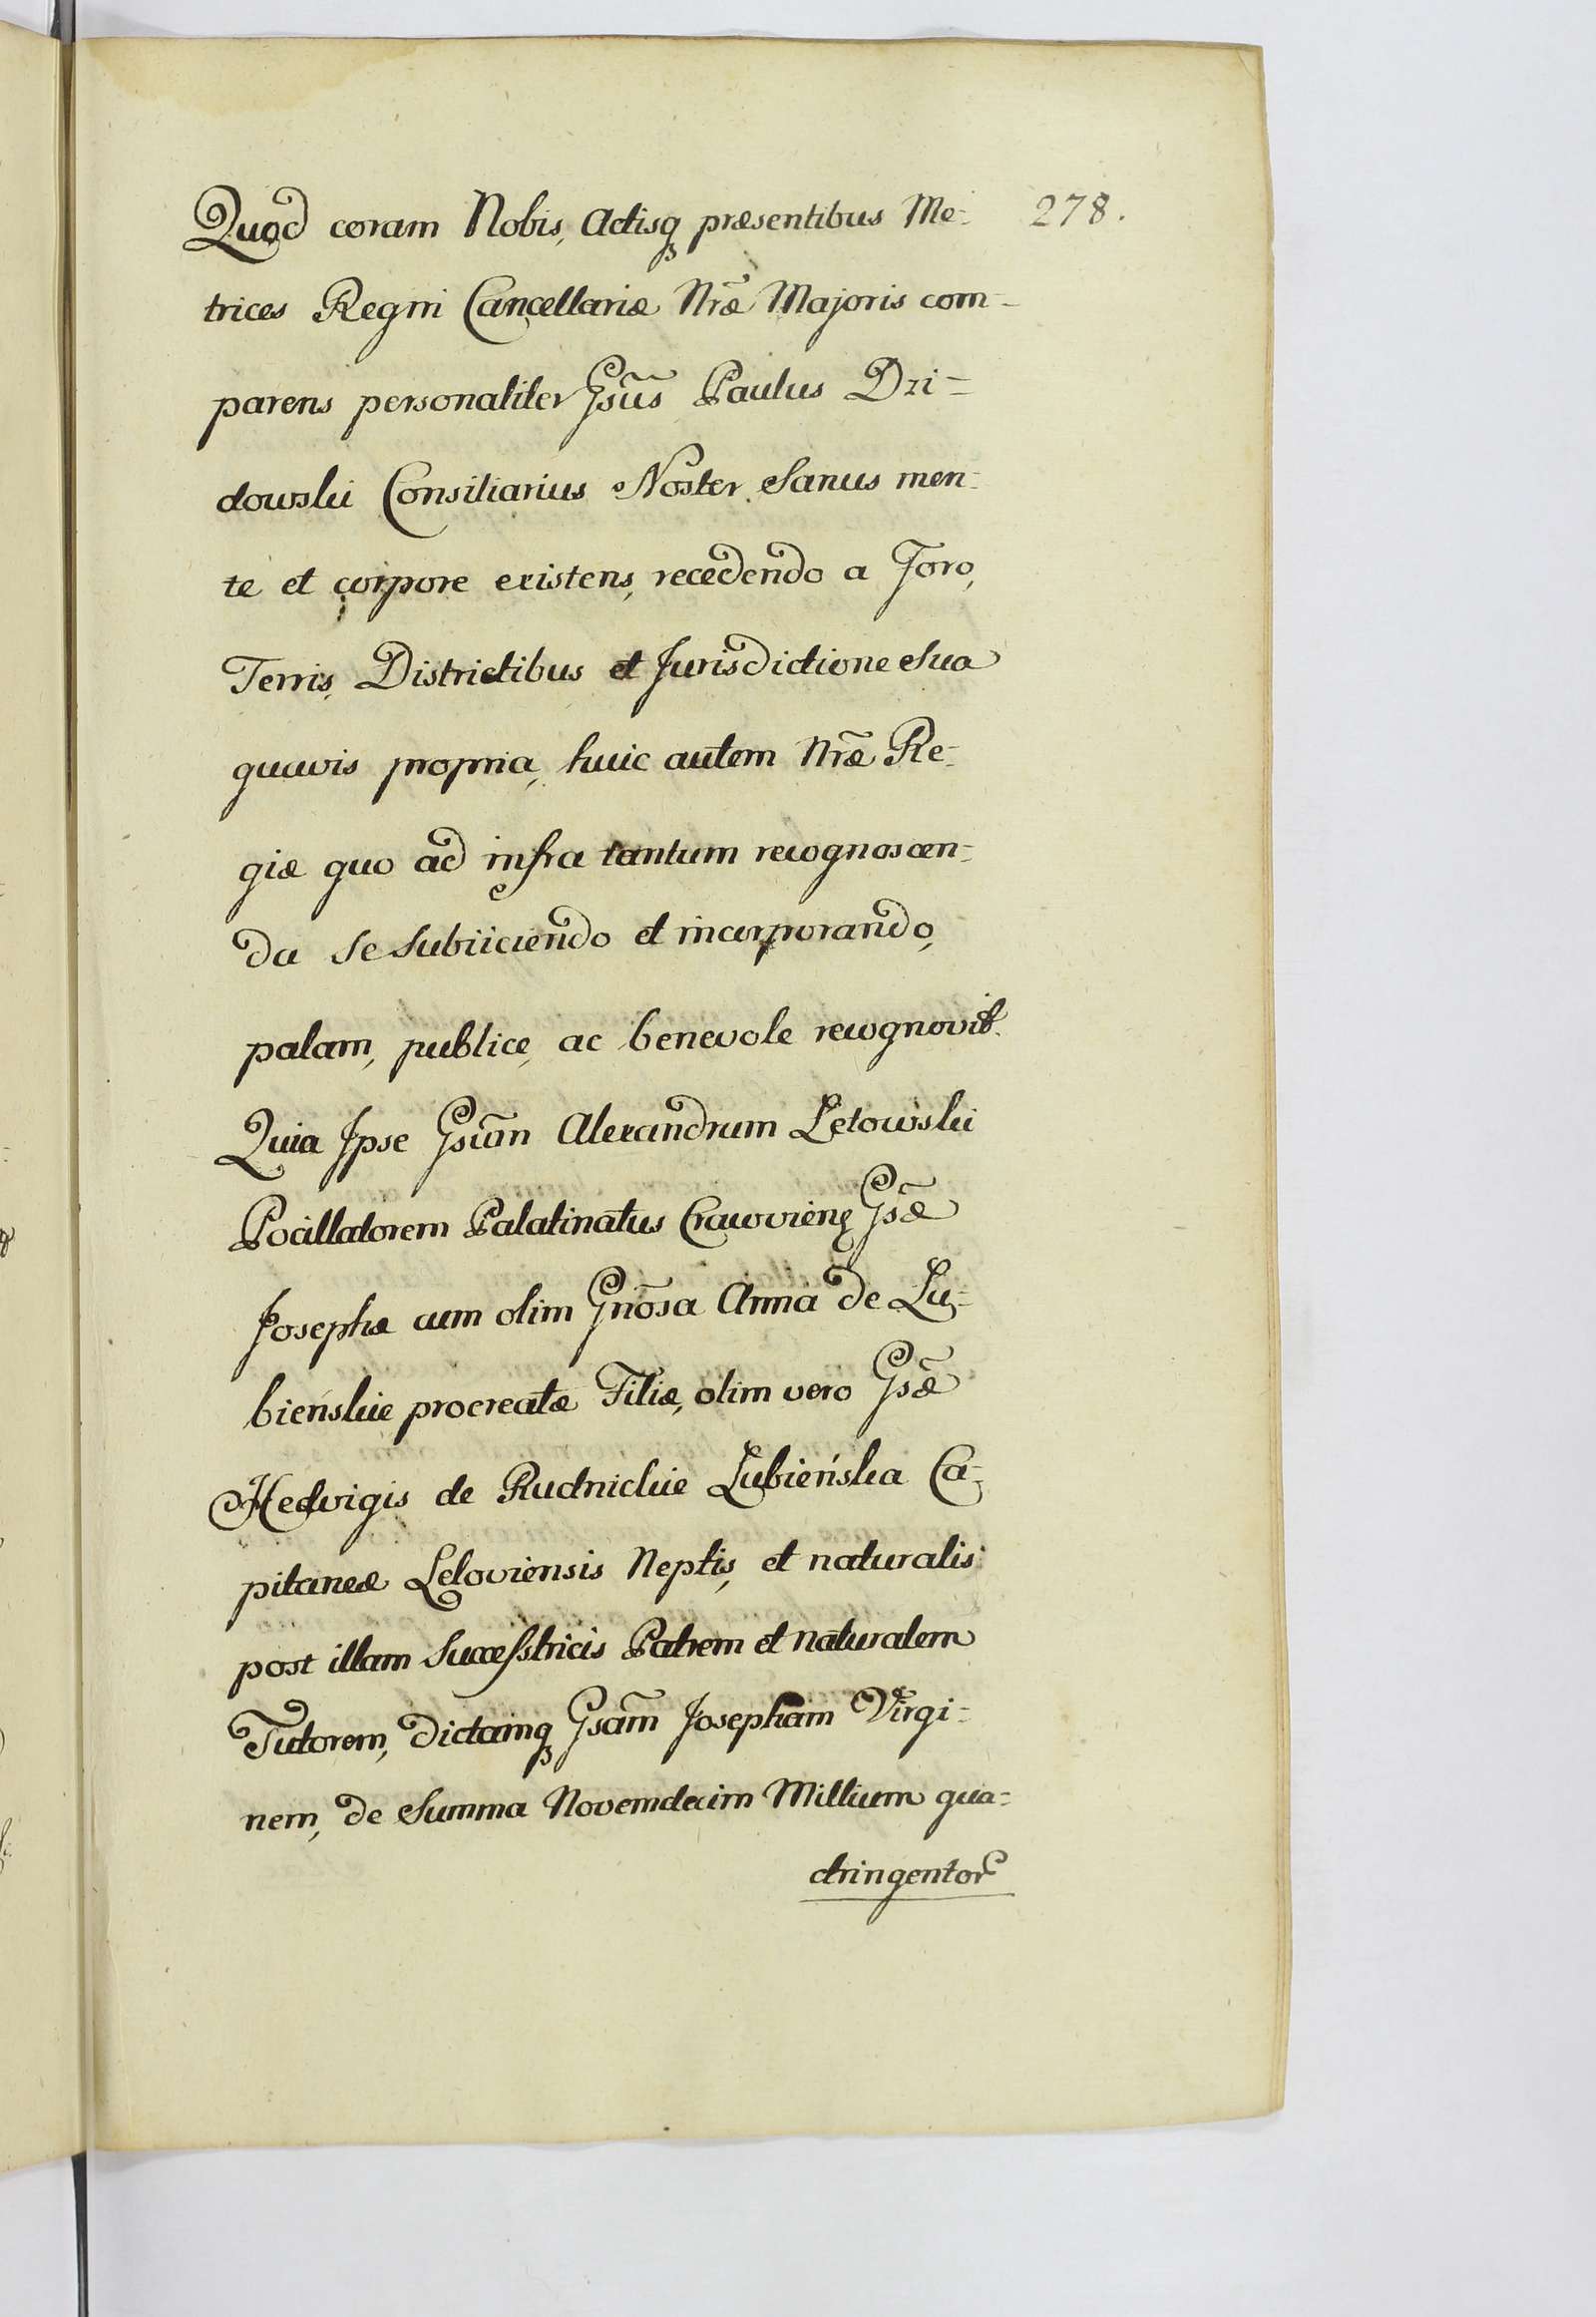 278.
Quod coram Nobis, Actisq₃ præsentibus Me-
trices Regni Cancellariæ Nr̃æ Majoris com-
parens personaliter Gsũs Paulus Dzi-
dowski Consiliarius Noster Sanus men-
te et corpore existens, recedendo a Foro,
Terris, Districtibus et Jurisdictione Sua
quavis propria, huic autem Nr̃æ Re-
giæ quo ad infra tantum recognoscen-
da se subiiciendo et incorporando,
palam, publice, ac benevole recognovit.
Quia Ipse Gsũm Alexandrum Letowski
Pocillatorem Palatinatus Cracovien Gsæ̃
Josephæ cum olim Gnõsa Anna de Lu-
bieńskie procreatæ Filiæ, olim vero Gsæ̃
Hedvigis de Rudnickie Lubieńska Ca-
pitaneæ Leloviensis Neptis, et naturalis
post illam Successtricis Patrem et naturalem
Tutorem, dictamq₃ Gsam̃ Josepham Virgi-
nem, de Summa Novemdecim Millium qua-
dringentor